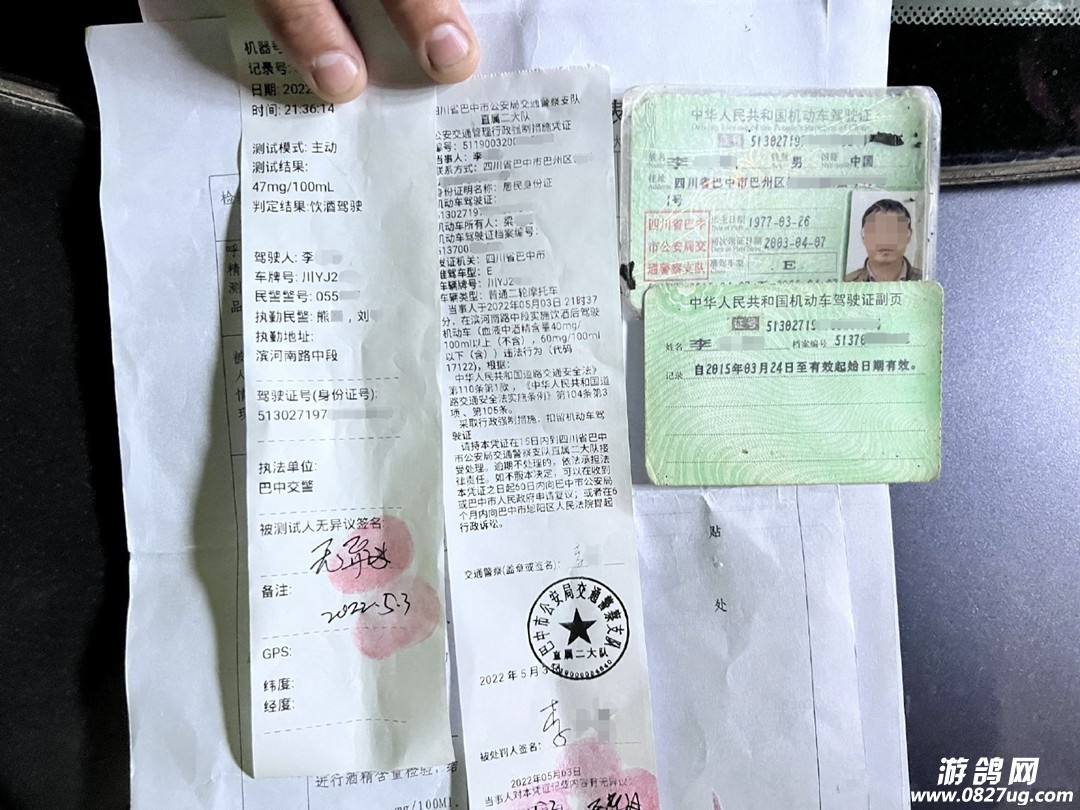 机器号
记录号:
日期: 2022
时间: 21:36:14
测试模式: 主动
测试结果:
47mg/100mL
判定结果:饮酒驾驶
驾驶人: 李
车牌号: 川YJ2
民警警号: 055
执勤民警: 熊 , 刘
执勤地址:
滨河南路中段
驾驶证号(身份证号):
513027197
执法单位:
巴中交警
被测试人无异议签名:
无异议
备注:
2022.5.3
GPS:
纬度:
经度:
四川省巴中市公安局交通警察支队
直属二大队
公安交通管理行政强制措施凭证
编号: 5119003200
当事人: 李
联系方式: 四川省巴中市巴州区
身份证明名称: 居民身份证
机动车驾驶证:
513027197
机动车所有人: 梁
机动车驾驶证档案编号:
513700
发证机关: 四川省巴中市
准驾车型: E
车辆牌号: 川YJ2
车辆类型: 普通二轮摩托车
当事人于2022年05月03日 21时37
分, 在滨河南路中段实施饮酒后驾驶
机动车 (血液中酒精含量40mg/
100ml以上 (不含) , 60mg/100ml
以下 (含) ) 违法行为 (代码
17122), 根据:
《中华人民共和国道路交通安全法》
第110条第1款, 《中华人民共和国道
路交通安全法实施条例》第104条第3
项、第105条。
采取行政强制措施: 扣留机动车驾
驶证
请持本凭证在15日内到四川省巴中
市公安局交通警察支队直属二大队接
受处理。逾期不处理的, 依法承担法
律责任。如不服本决定, 可以在收到
本凭证之日起60日内向巴中市公安局
或巴中市人民政府申请复议; 或者在6
个月内向巴中市恩阳区人民法院提起
行政诉讼。
交通警察(盖章或签名):
巴中市公安局交通警察支队
直属二大队
2022 年 5月 3
李
被处罚人签名:
2022年05月03日
当事人对本凭证记载内容有无异议:
中华人民共和国机动车驾驶证
证号 51302719
姓名 李 性别 男 国籍 中国
住址 四川省巴中市巴州区
1号
四川省巴中
市公安局交
通警察支队
出生日期 1977-03-26
初次领证日期 2003-04-07
准驾车型 E
中华人民共和国机动车驾驶证副页
证号 51302719
姓名 李 档案编号 5137
记录 自2015年03月24日至有效起始日期有效。
表
贴
处
进行酒精含量检验, 结
mg/100ML.
游鸽网
www.0827ug.com